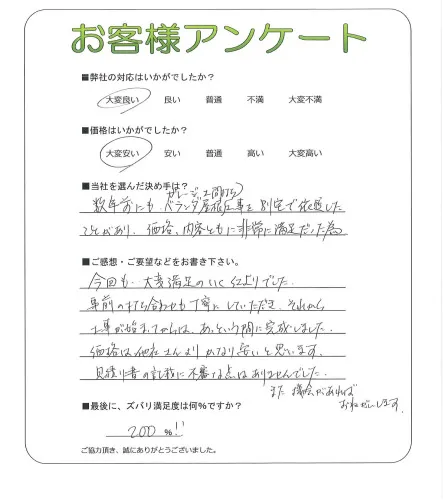 お客様アンケート
■弊社の対応はいかがでしたか?
大変良い 良い 普通 不満 大変不満
■価格はいかがでしたか?
大変安い 安い 普通 高い 大変高い
■当社を選んだ決め手は?
ガレージ工事
数年前にも ベランダ屋根工事を別宅で依頼した
ことがあり、価格、内容ともに非常に満足だった為
■ご感想・ご要望などをお書き下さい。
今回も大変満足のいく仕上りでした。
事前の打ち合わせも丁寧にしていただき、それから
工事が始まってからは、あっという間に完成しました。
価格は他社さんよりかなり安いと思います。
見積り書の記載に不審な点はありませんでした。
また機会があれば
おねがいします。
■最後に、ズバリ満足度は何%ですか?
200 %!!
ご協力頂き、誠にありがとうございました。